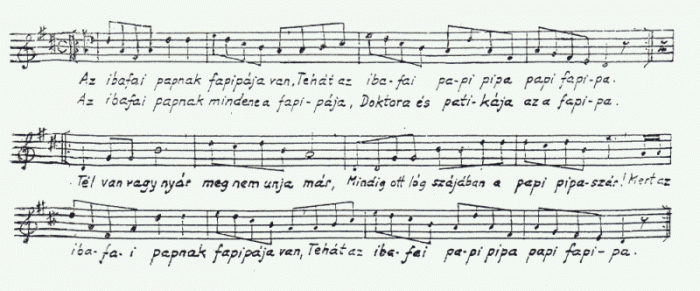 Az ibafai papnak fapipája van, Tehát az iba-fai pa-pi pipa papi fapi-pa.
Az ibafai papnak mindene a fapi-pája, Doktora és pati-kája az a fapi-pa.
Tél van vagy nyár meg nem unja már, Mindig ott lóg szájában a papi pipa-szár! Mert az
iba-fa-i papnak fapipája van, Tehát az iba-fai pa-pi pipa papi fapi-pa.